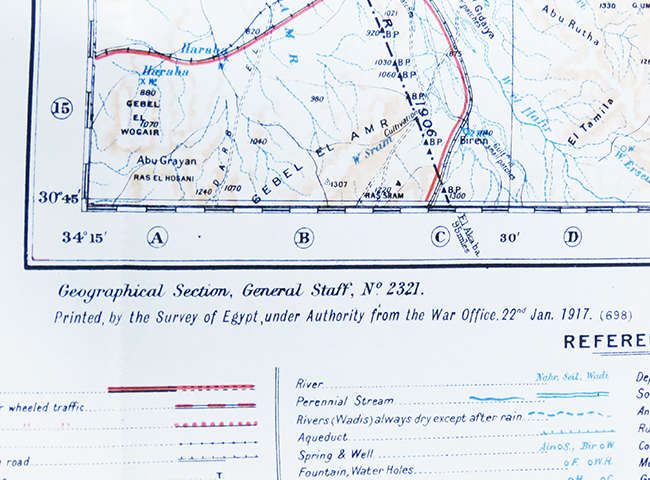 1330
G.UM
Abu Rutha
1021
920
B.P
820
G. Qidaya
875
Haraba
Haraba
1030
B.P
1060
B.P
Wadi Habr
980
B.P
15
880
GEBEL
EL
WOGAIR
1070
1906
El Tamila
1040
Cultivation
B.P
Birein
GEBEL EL AMR
W Sram
Abu Grayan
RAS EL HOSANI
DARB
1240
1070
1307
1220
RAS SRAM
B.P
1300
30°45'
34°15'
A
B
C
30'
D
El Akaba
95 miles
Geographical Section, General Staff, No 2321.
Printed, by the Survey of Egypt, under Authority from the War Office. 22nd Jan. 1917. (698)
REFERE
River
Nahr, Seil, Wadi
Perennial Stream
r wheeled traffic
Rivers (Wadis) always dry except after rain
Aqueduct
Spring & Well
Ain o S., Bir o W.
y road
Fountain, Water Holes
o F. o W.H.
T